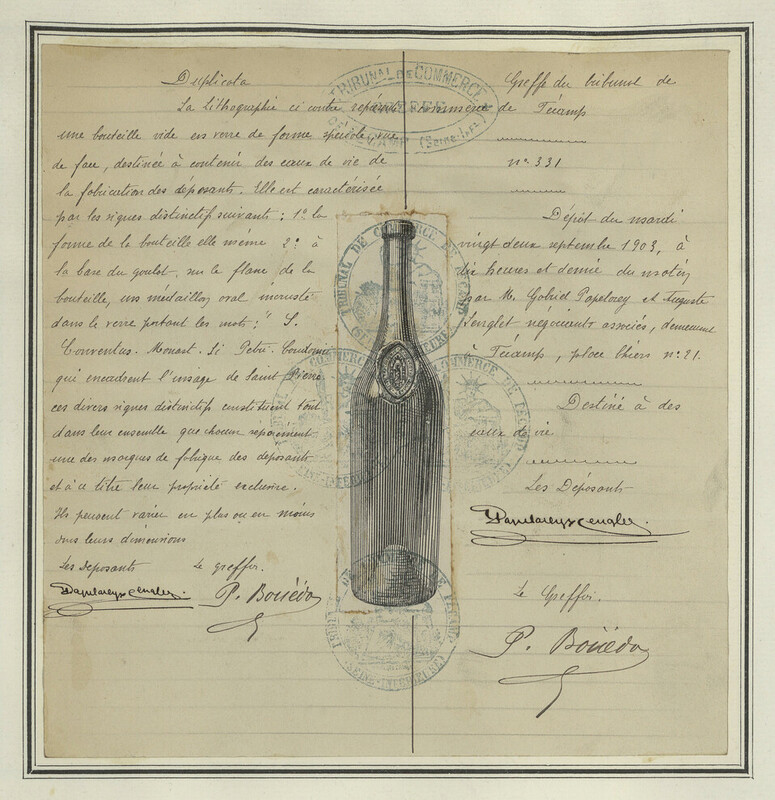 Duplicata
La Lithographie ci contre représente
une bouteille vide en verre de forme spéciale, vue
de face, destinée à contenir des eaux de vie de
la fabrication des déposants. Elle est caractérisée
par les signes distinctifs suivants : 1º la
forme de la bouteille elle même 2º à
la base du goulot, sur le flanc de la
bouteille, un médaillon oval incrusté
dans le verre portant les mots : " S.
Conventus. Monast. Si Petri.
qui encadrent l'image de Saint Pierre
ces divers signes distinctifs constituent tant
dans leur ensemble que chacun séparement
une des marques de fabrique des déposants
et à ce titre leur propriété exclusive.
Ils peuvent varier en plus ou en moins
dans leurs dimensions
Les Déposants Le greffier.
Papelarey & Lenglet. P. Bouëda
Greffe du tribunal de
commerce de Fécamp
nº 331
Dépôt du mardi
vingt deux septembre 1903, à
dix heures et demie du matin
par M. Gabriel et Auguste
Lenglet négociants associés, demeurant
à Fécamp, place Thiers nº 21.
Destiné à des
eaux de vie
Les Déposants
Le Greffier.
P. Bouëda
TRIBUNAL DE COMMERCE
GREFFE
DE FÉCAMP (Seine-Infre)
TRIBUNAL DE COMMERCE DE FÉCAMP
(SEINE-INFÉRIEURE)
TRIBUNAL DE COMMERCE DE FÉCAMP
(SEINE-INFÉRIEURE)
COMMERCE DE FÉCAMP
TRIBUNAL DE COMMERCE DE FÉCAMP
(SEINE-INFÉRIEURE)